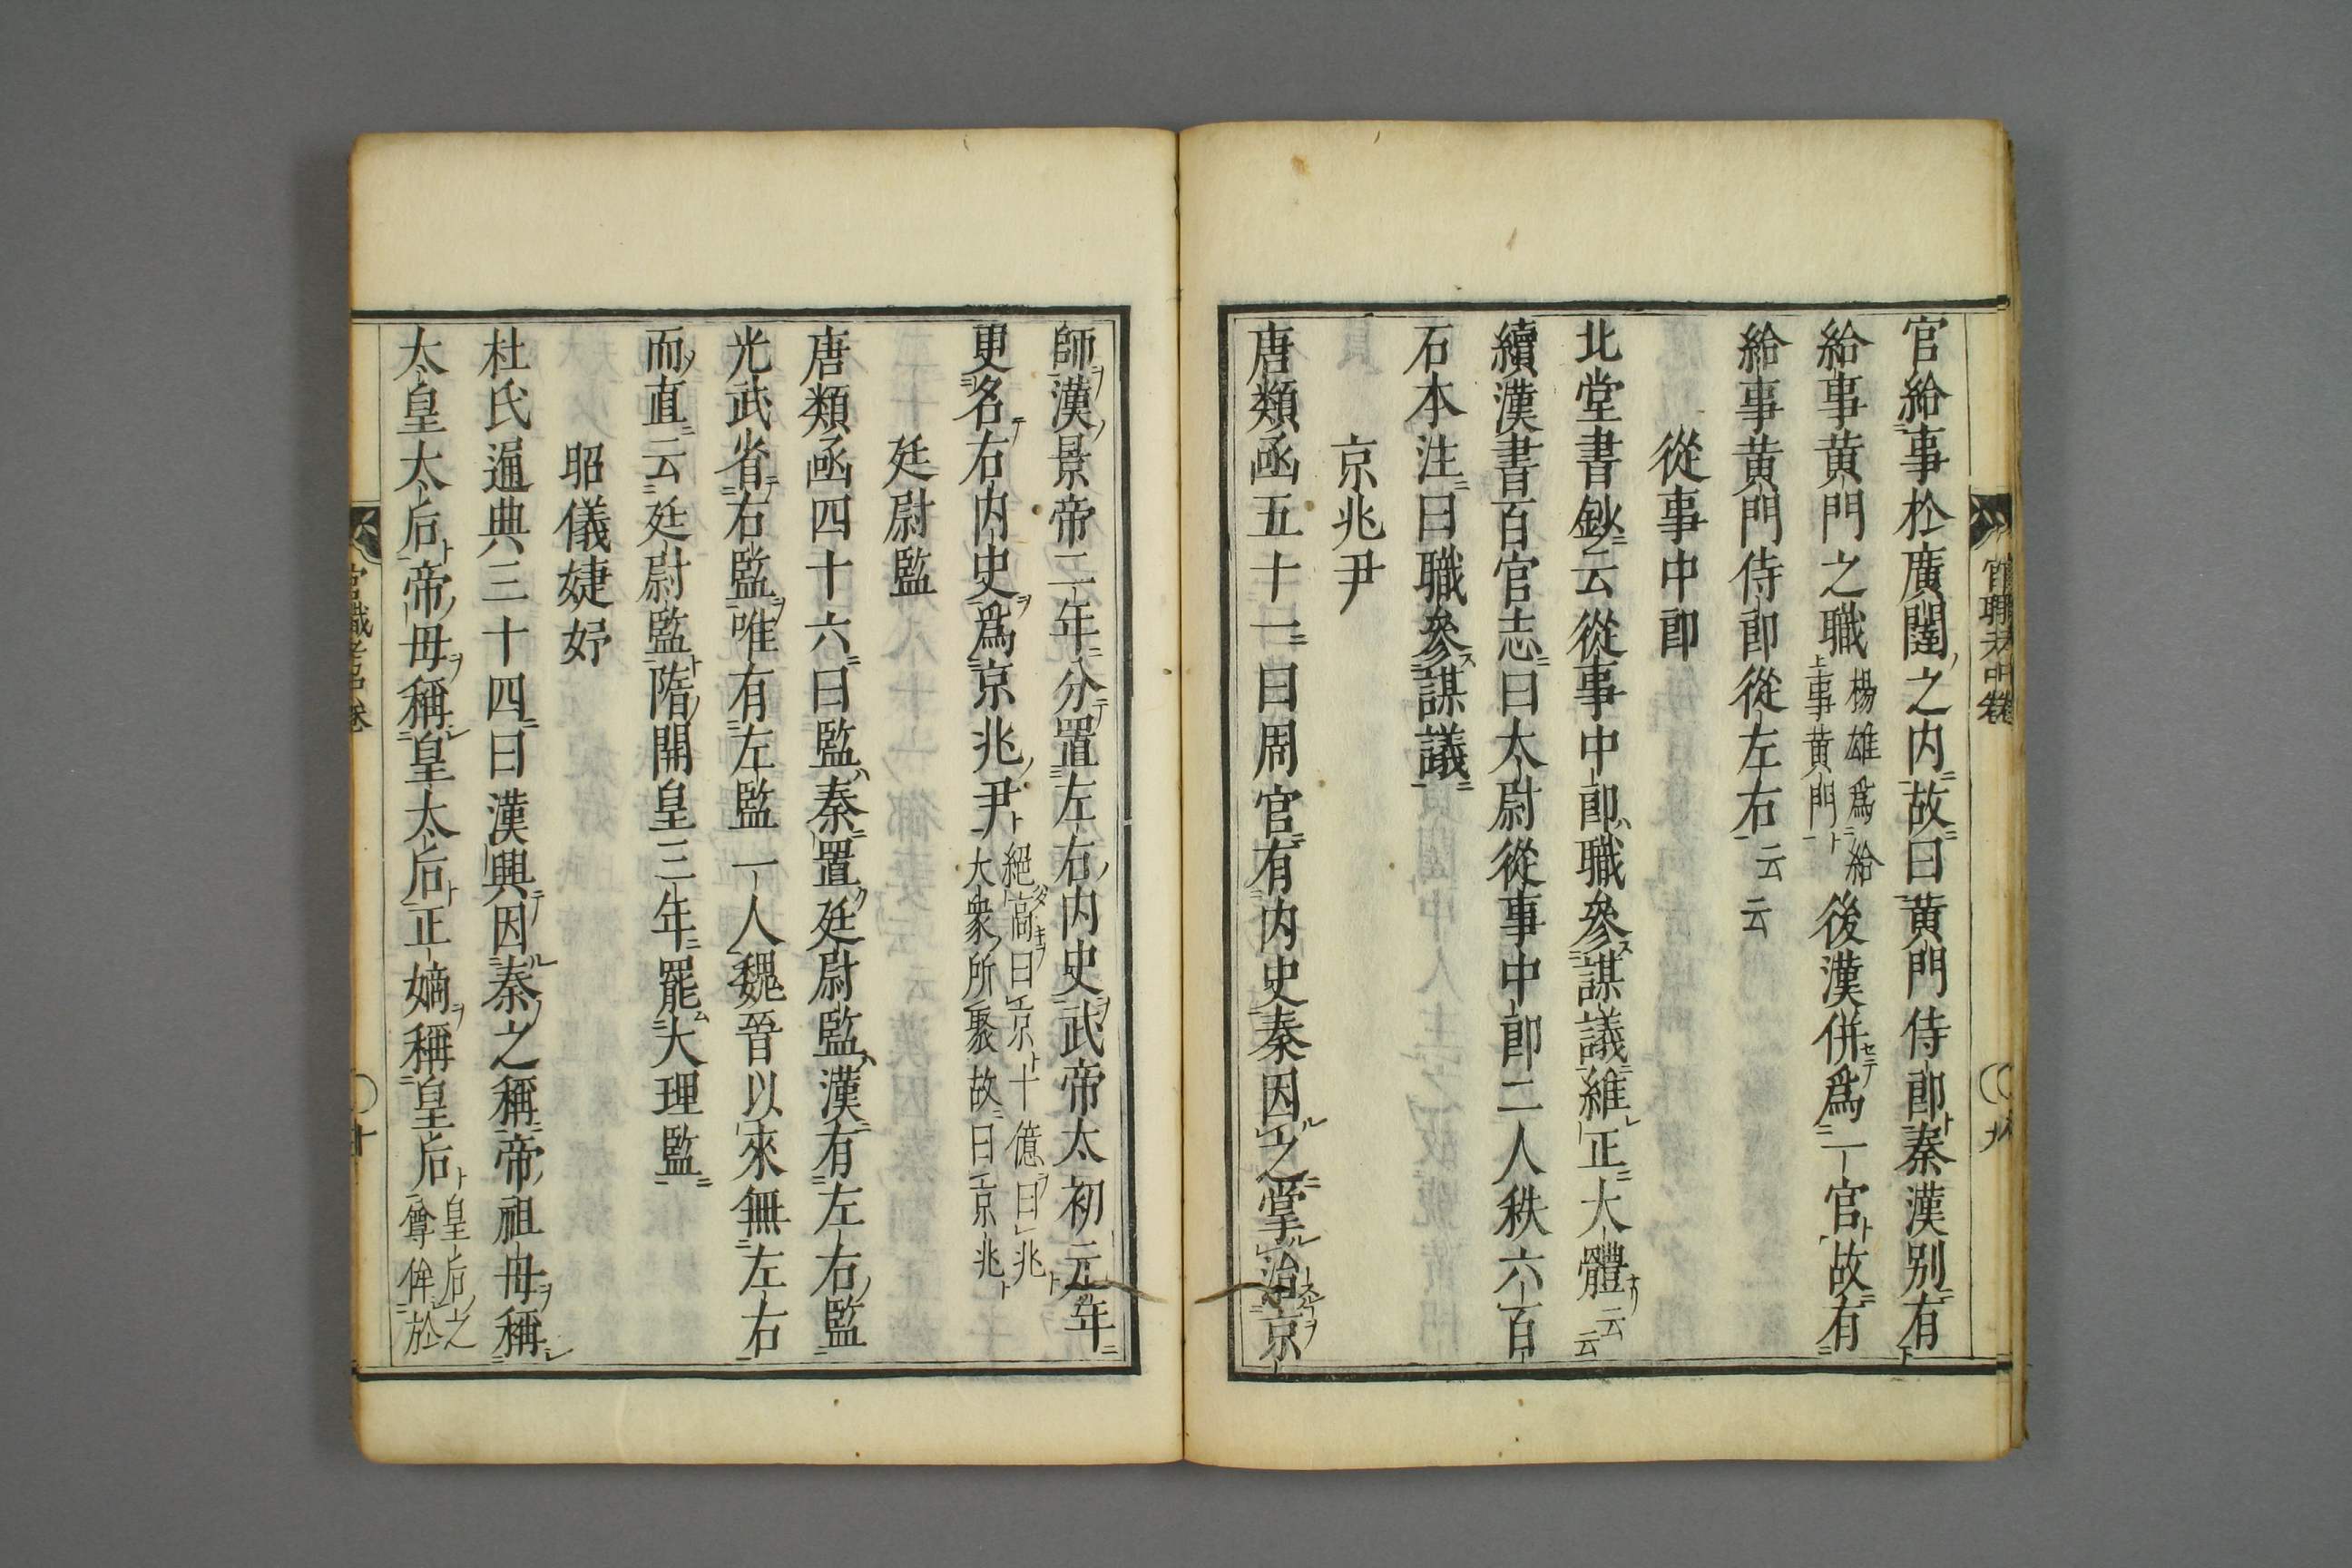 官給事於廣闥之内故曰黄門侍郎秦漢別有
給事黄門之職楊雄爲給事黄門上後漢併爲一官故有
給事黄門侍郎從左右云云
從事中郎
北堂書鈔云從事中郎職參謀議維正大體云云
續漢書百官志曰太尉從事中郎二人秩六百
石本注曰職參謀議
京兆尹
唐類函五十一曰周官有内史秦因之掌治京
師漢景帝二年分置左右内史武帝太初元年
更名右内史爲京兆尹絕高曰京十億曰兆大衆所聚故曰京兆
廷尉監
唐類函四十六曰監秦置廷尉監漢有左右監
光武省右監唯有左監一人魏晉以來無左右
而直云廷尉監隋開皇三年罷大理監
昭儀婕妤
杜氏通典三十四曰漢興因秦之稱帝祖母稱
太皇太后帝母稱皇太后正嫡稱皇后皇后之尊侔於